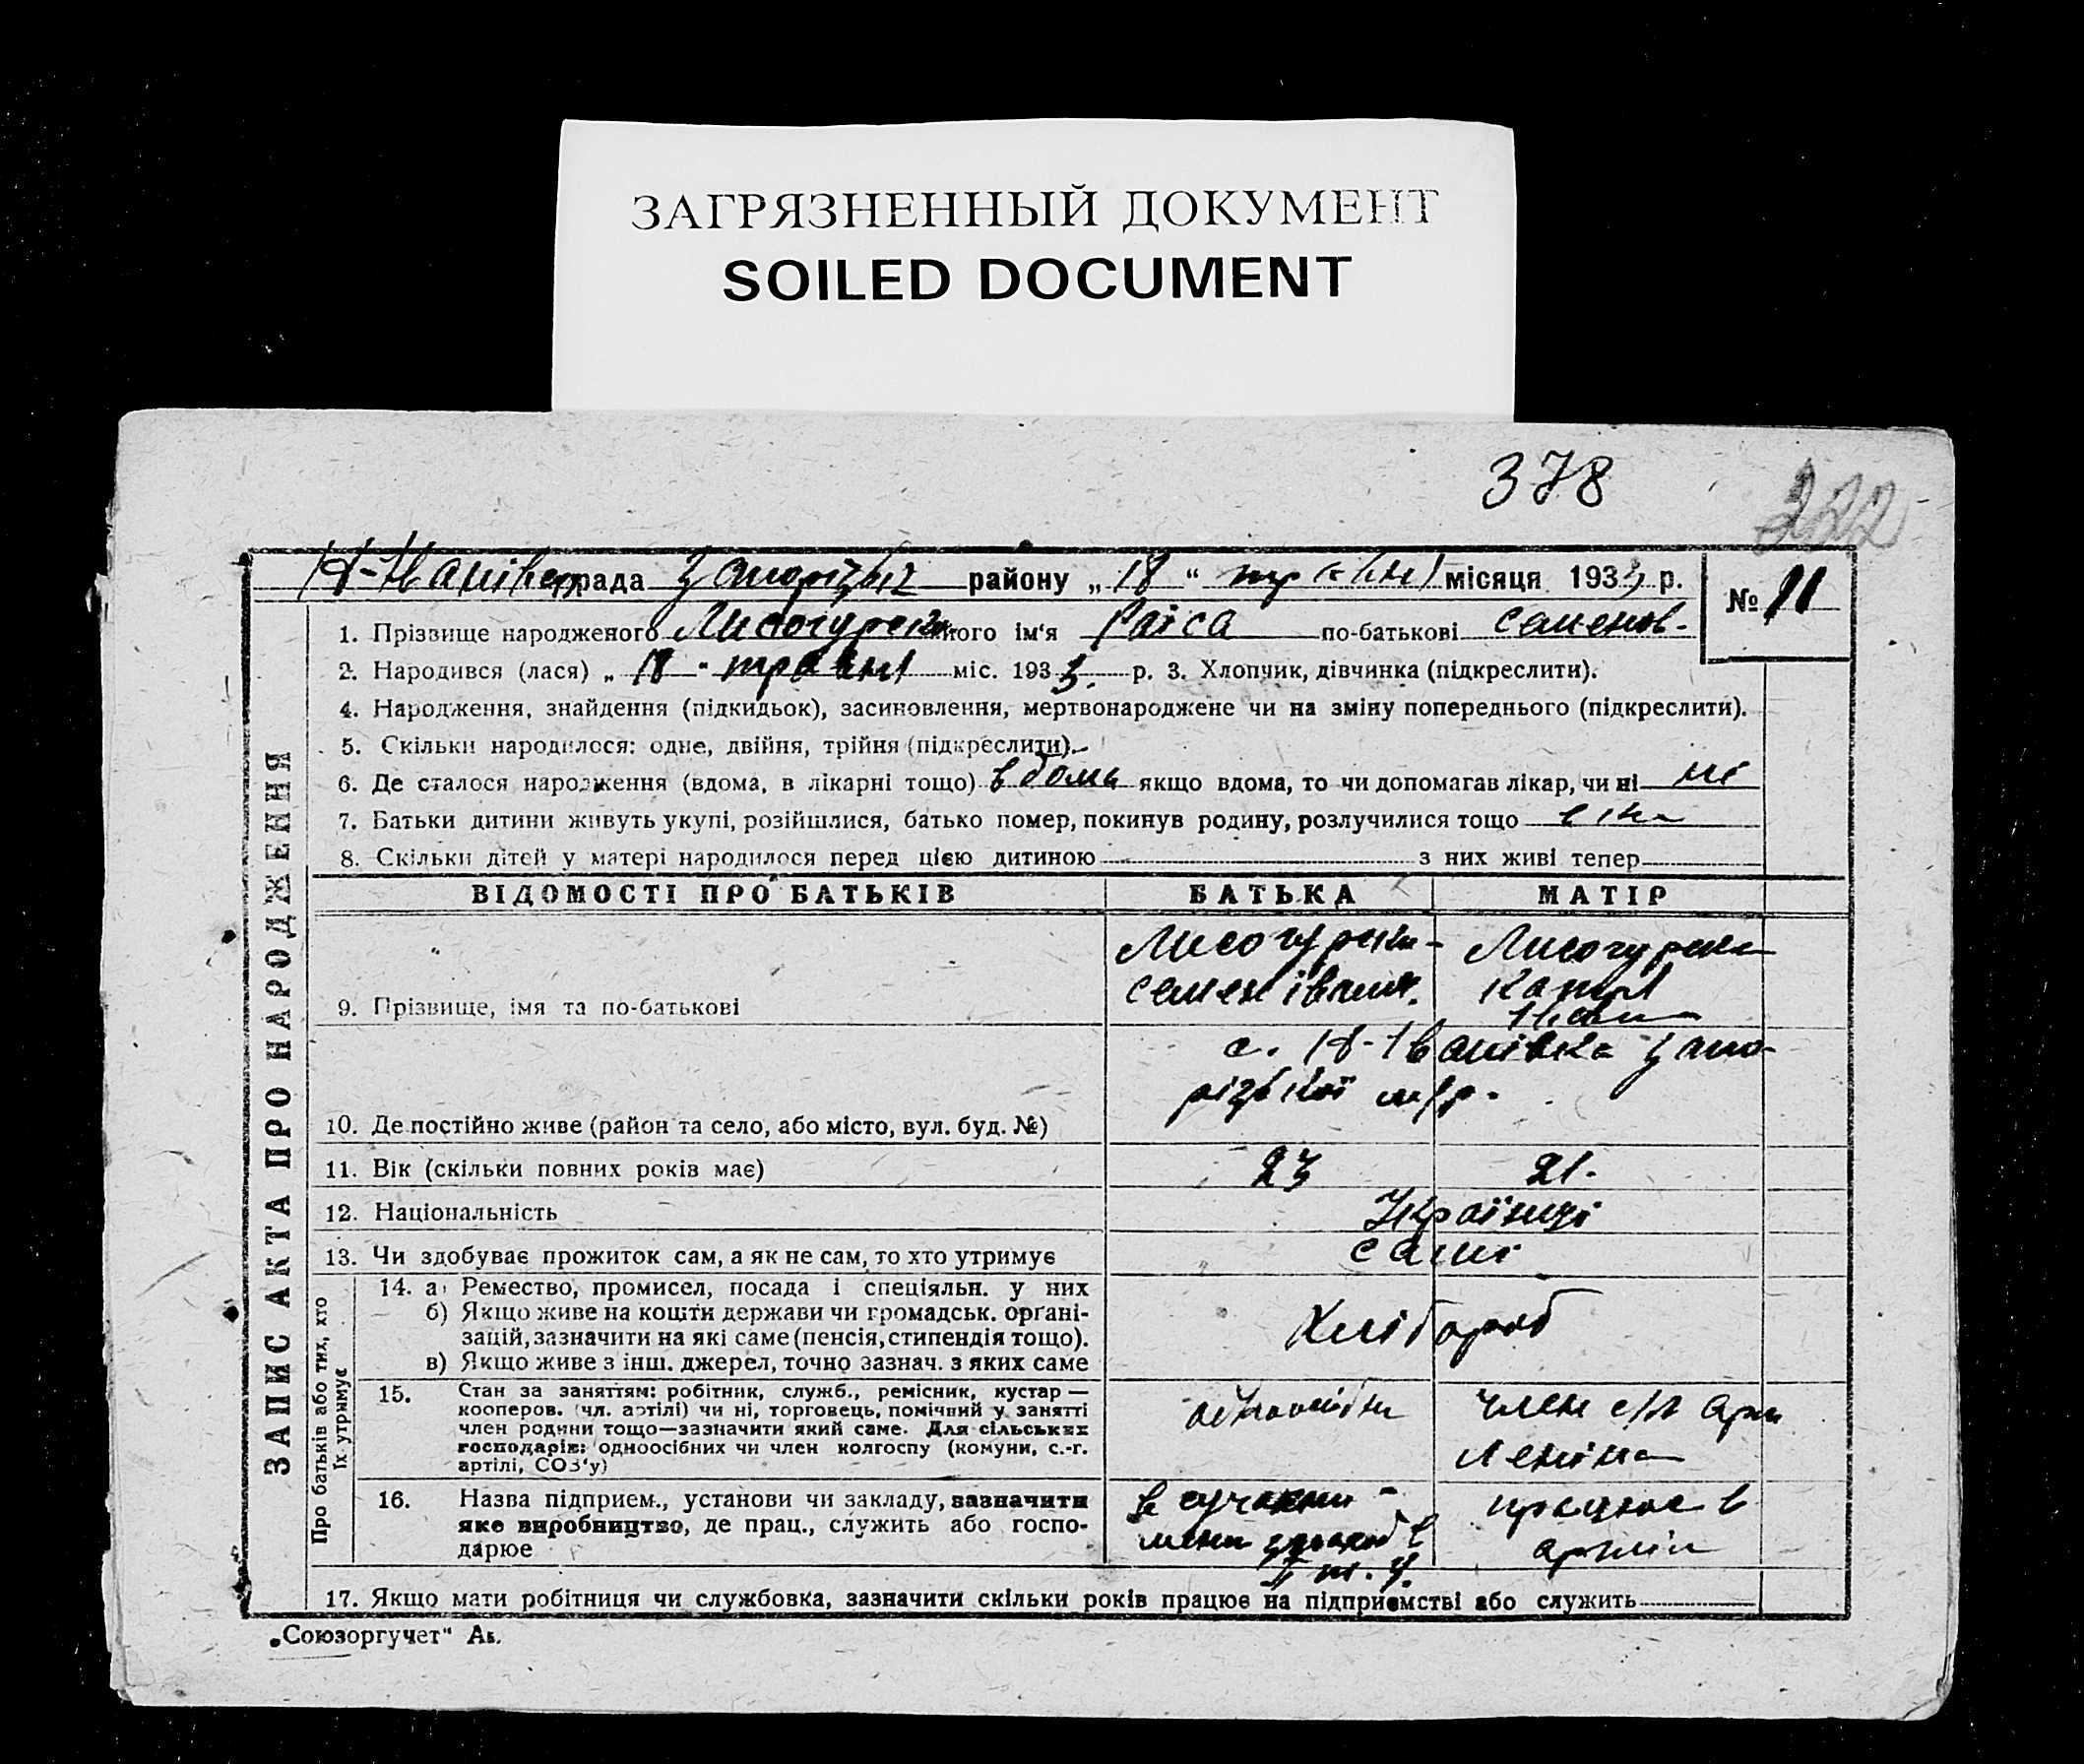 ЗАГРЯЗНЕННЫЙ ДОКУМЕНТ
SOILED DOCUMENT
378
222
рада району „18“ місяця 1933 р.
№ 11
1. Прізвище народженого його ім'я Раіса по-батькові Семенов.
2. Народився (лася) „18“ травня міс. 1933. р. 3. Хлопчик, дівчинка (підкреслити).
4. Народження, знайдення (підкидьок), засиновлення, мертвонароджене чи на зміну попереднього (підкреслити).
5. Скільки народилося: одне, двійня, трійня (підкреслити).
6. Де сталося народження (вдома, в лікарні тощо) вдома якщо вдома, то чи допомагав лікар, чи ні ні
7. Батьки дитини живуть укупі, розійшлися, батько помер, покинув родину, розлучилися тощо
8. Скільки дітей у матері народилося перед цією дитиною з них живі тепер
ВІДОМОСТІ ПРО БАТЬКІВ БАТЬКА МАТІР
9. Прізвище, імя та по-батькові Семен
с. Н-Іванівка Запо-
різької м/р.
10. Де постійно живе (район та село, або місто, вул. буд. №)
11. Вік (скільки повних років має) 23 21.
12. Національність Українці
13. Чи здобуває прожиток сам, а як не сам, то хто утримує самі
14. а) Ремество, промисел, посада і спеціяльн. у них
б) Якщо живе на кошти держави чи громадськ. органі-
зацій, зазначити на які саме (пенсія, стипендія тощо).
в) Якщо живе з інш. джерел, точно зазнач. з яких саме
Хлібороб
15. Стан за заняттям: робітник, служб., ремісник, кустар —
кооперов. (чл. артілі) чи ні, торговець, помічний у занятті
член родини тощо—зазначити який саме. Для сільських
господарів: одноосібних чи член колгоспу (комуни, с.-г.
артілі, СОЗ'у)
член с/г
Леніна
16. Назва підприєм., установи чи закладу, зазначити
яке виробництво, де прац., служить або госпо-
дарюе
працює в
артілі
17. Якщо мати робітниця чи службовка, зазначити скільки років працює на підприємстві або служить
ЗАПИС АКТА ПРО НАРОДЖЕННЯ
Про батьків або тих, хто
їх утримує
„Союзоргучет“